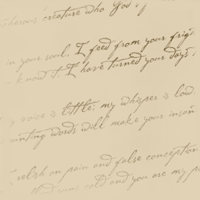 creature who God
in your soul. I feed from your frig
I have turned your days
voice is little; my whisper is loud
words will make your
on pain and false conception
was cold and you are my p